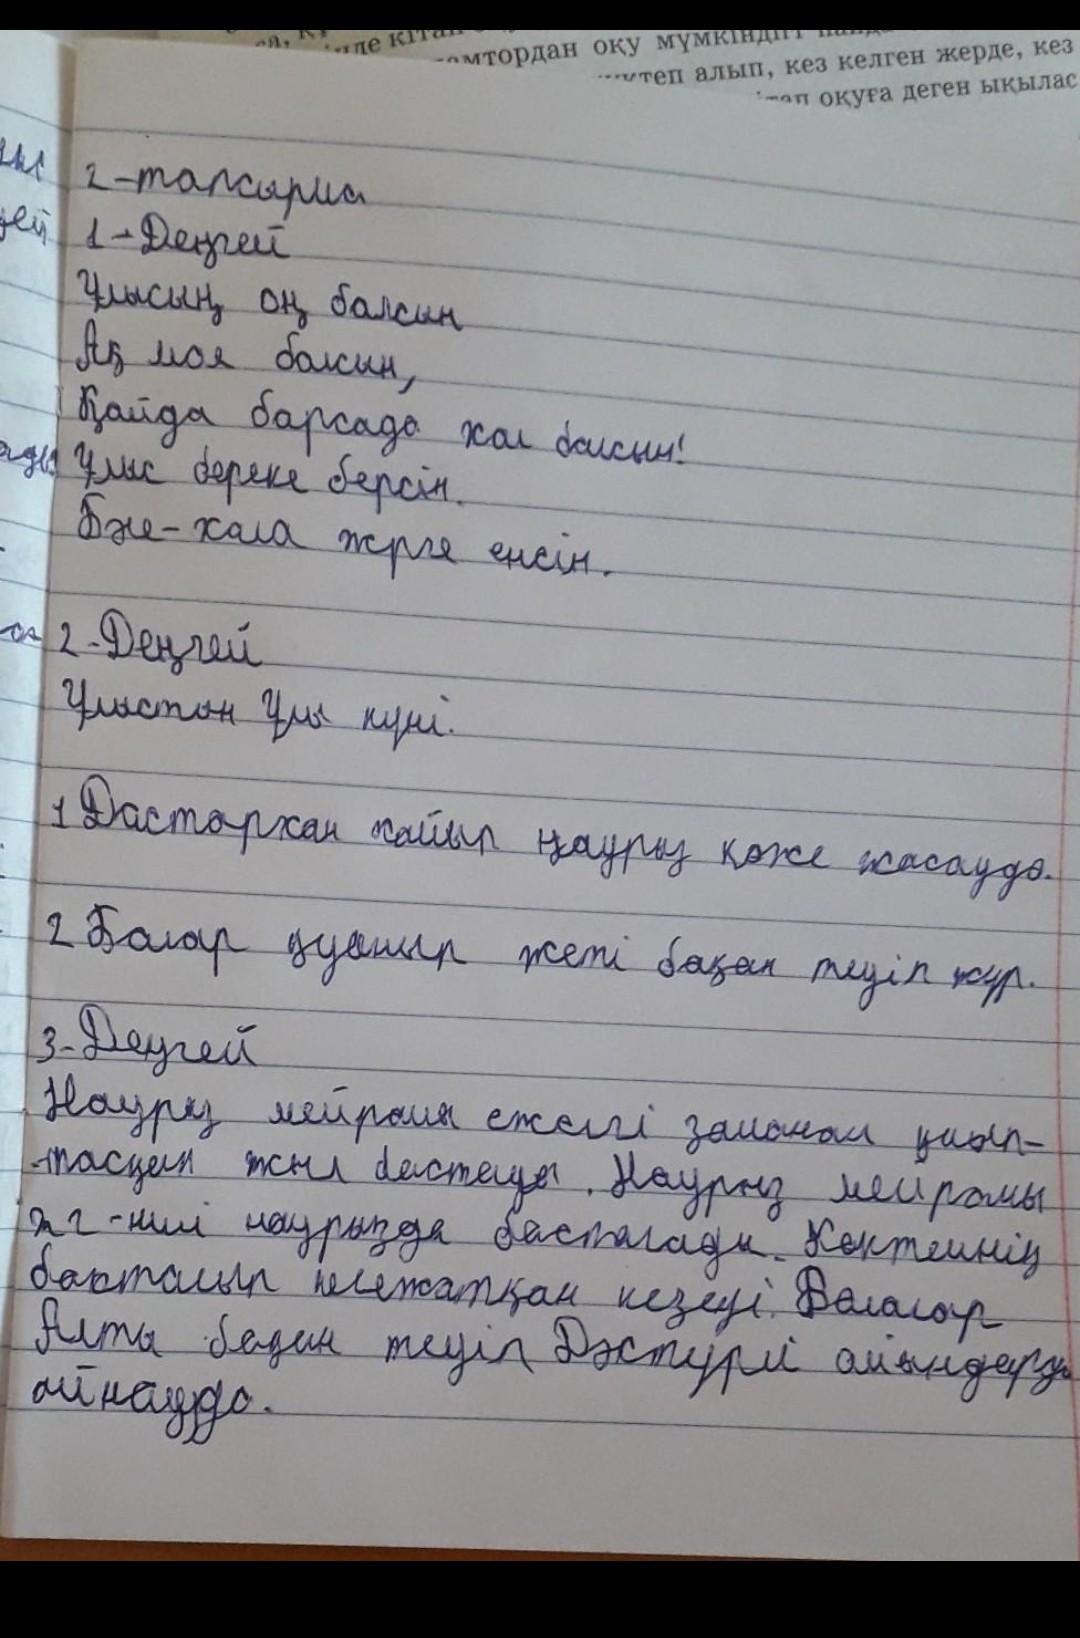 інде кітап
омтордан оқу мүмкіндігі
теп алып, кез келген жерде, кез
оқуға деген ықылас
2-тапсырма
1-Деңгей
Ұлысың оң болсын
Ақ мол болсын,
Қайда барсада жол болсын!
Ұлыс береке берсін.
Бәле-жала жерге енсін.
2-Деңгей
Ұлыстың Ұлы күні.
1 Дастархан жайып наурыз көже жасауда.
2 Балар қуанып жеті бақан теуіп жүр.
3-Деңгей
Наурыз мейрамы ежелгі заманнан қалып-
тасқан жыл бастауы. Наурыз мейрамы
22-ниі наурызда басталады. Көктемнің
басталып кележатқан кезеңі. Балалар
Алты бақан теуіп Дәстүрлі ойындарды
ойнауда.